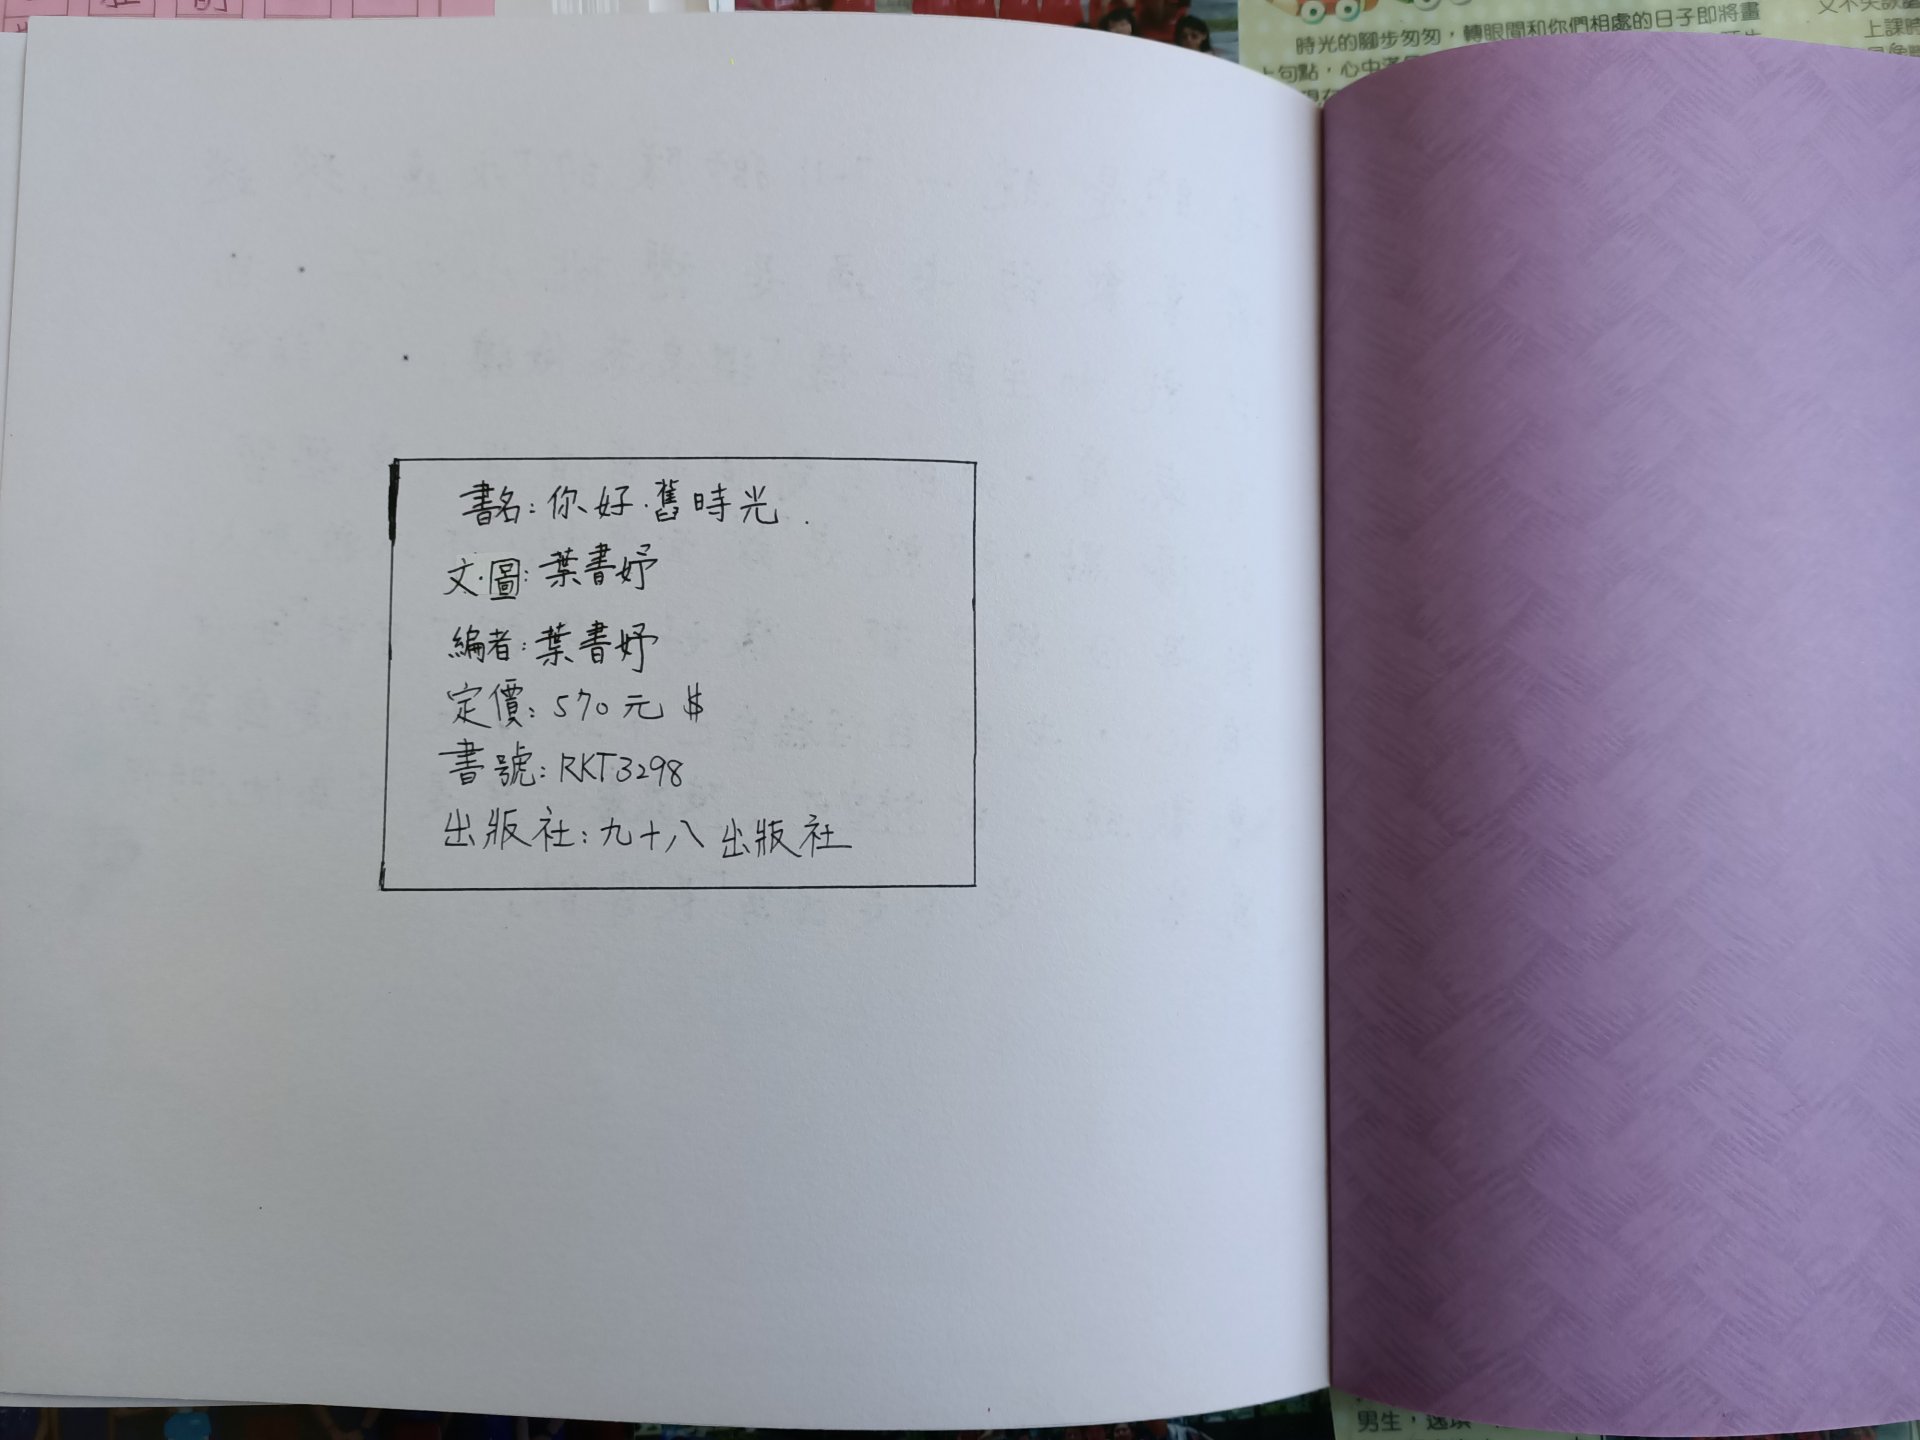 時光的腳步匆匆，轉眼間和你們相處的日子即將畫
上句點，心中
上課時
書名：你好．舊時光．
文．圖：葉書妤
編者：葉書妤
定價：570元 $
書號：RKT3298
出版社：九十八出版社
男生，